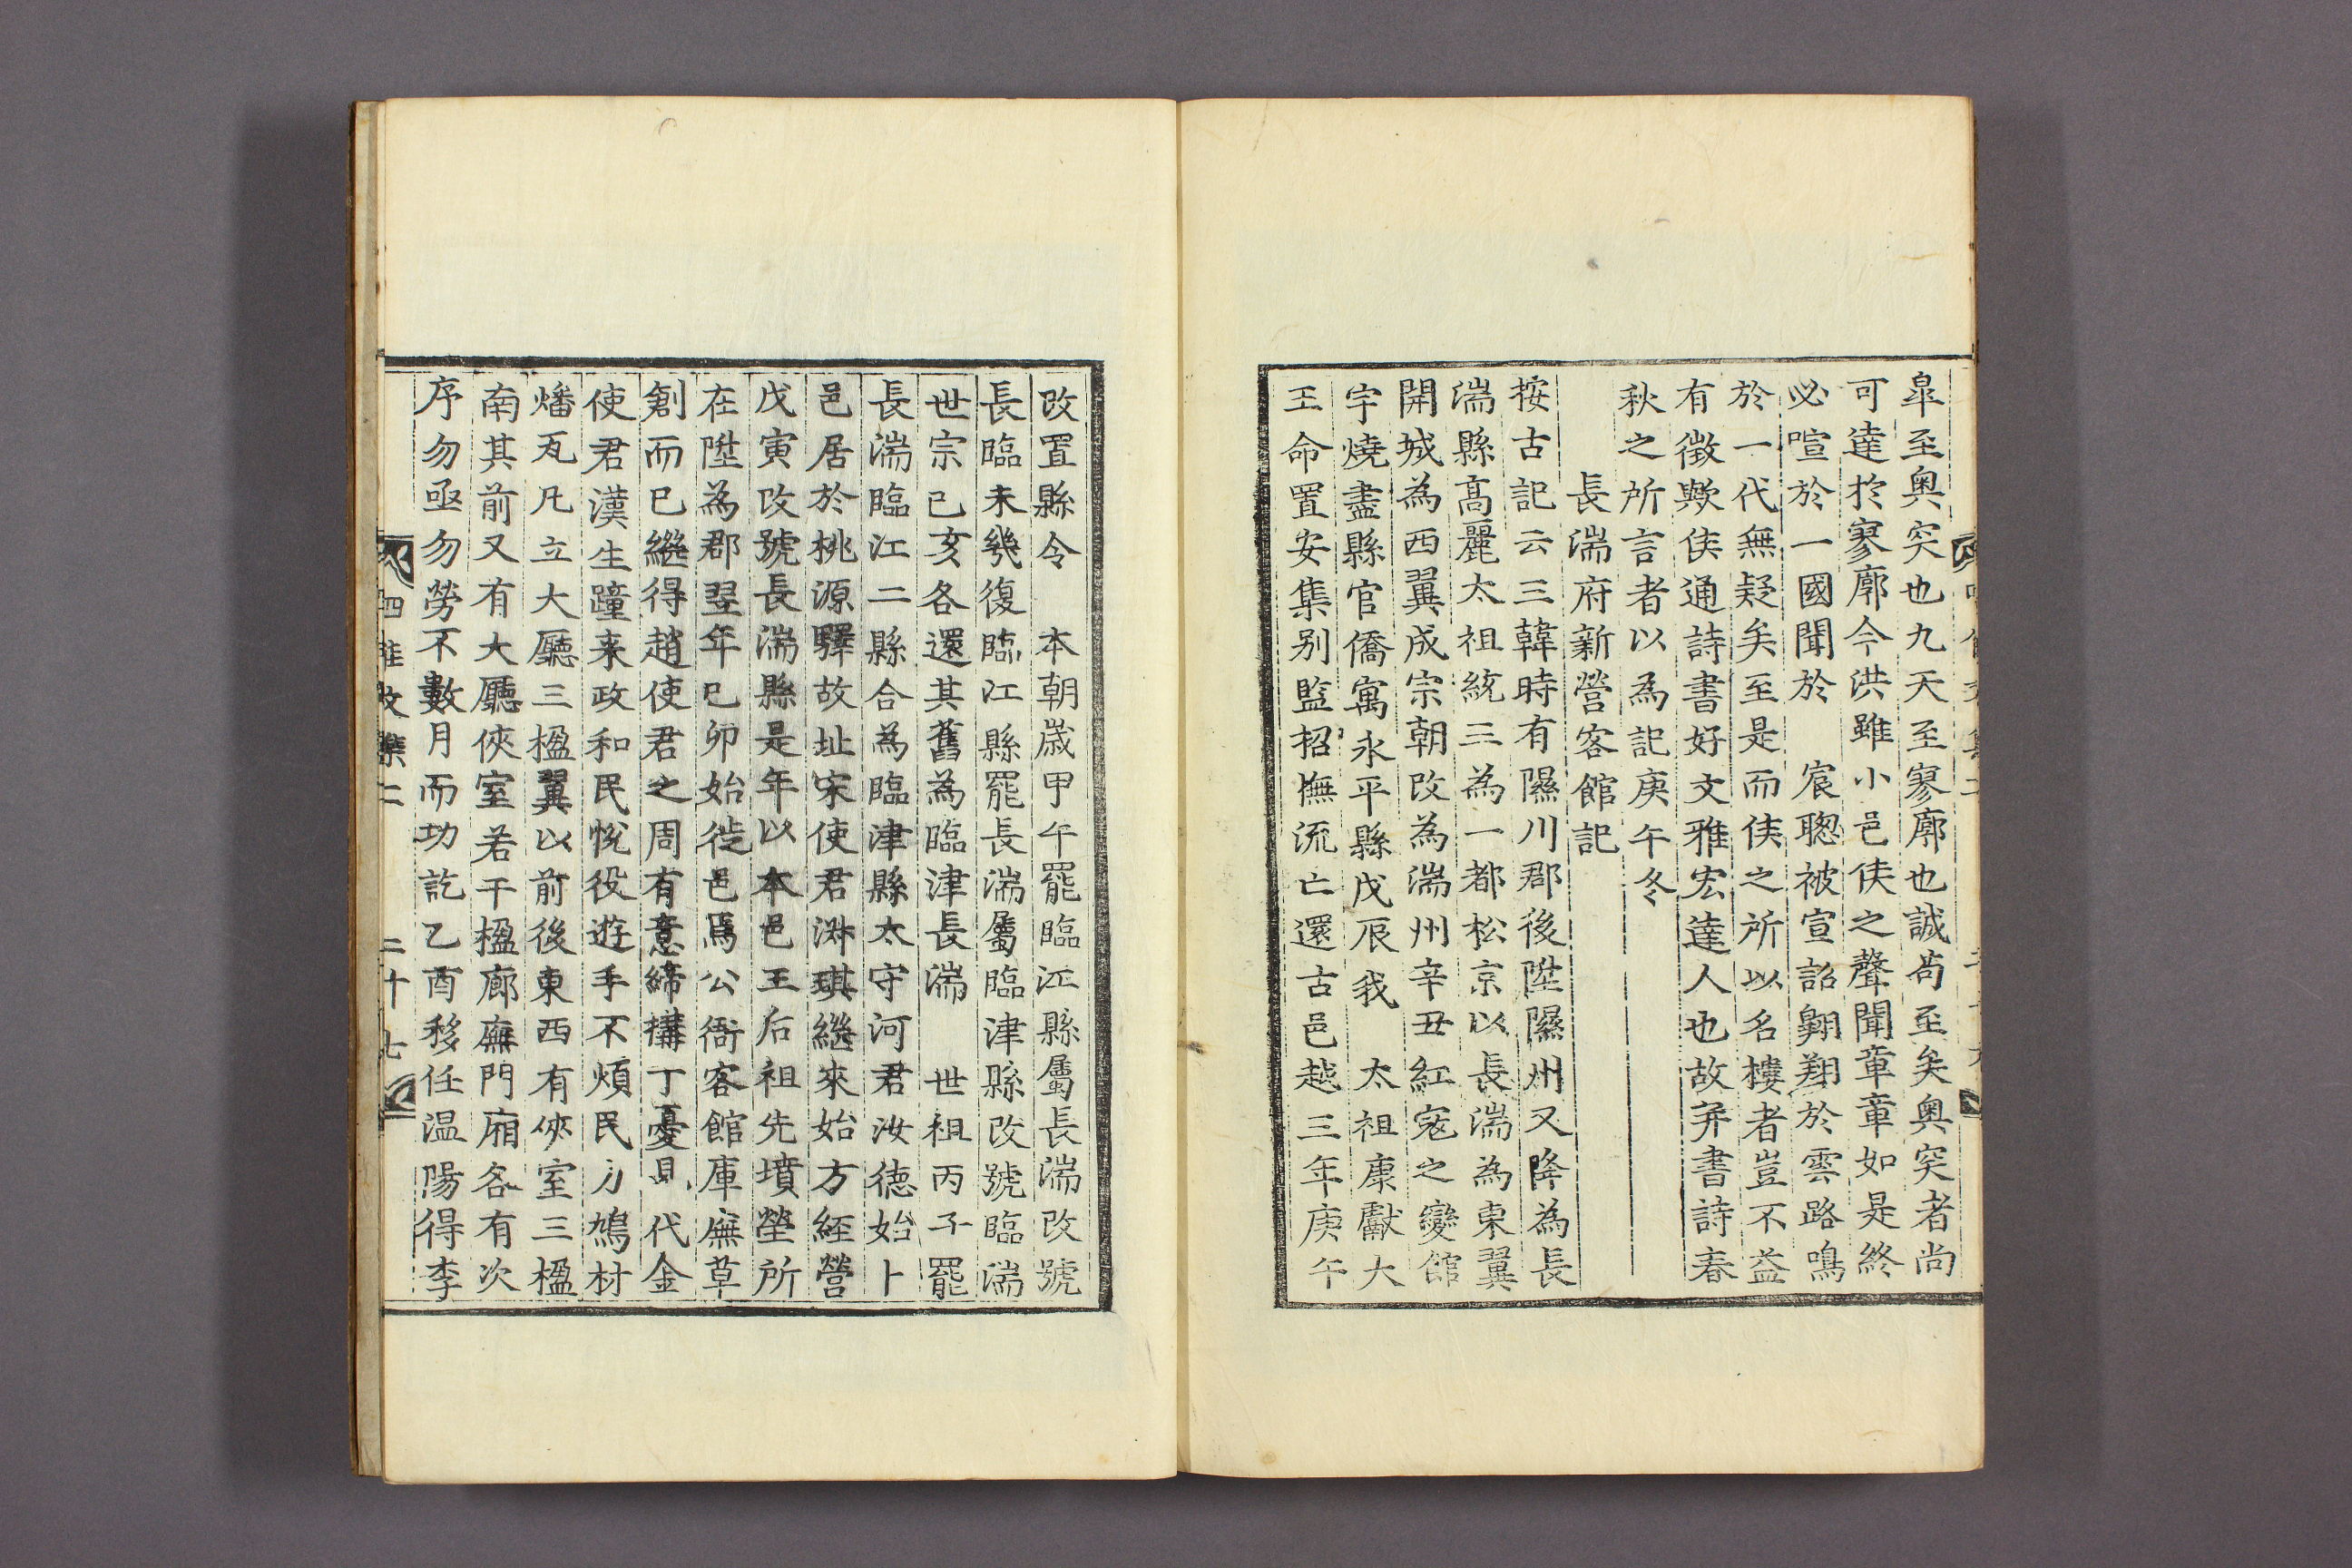 皐至奧突也九天至寥廓也誠苟至矣奧突者尚
可達於寥廓今洪雖小邑侯之聲聞章章如是終
必喧於一國聞於　宸聰被宣詔翺翔於雲路鳴
於一代無疑矣至是而侯之所以名樓者豈不益
有徵歟侯通詩書好文雅宏達人也故并書詩春
秋之所言者以爲記庚午冬
長湍府新營客館記
按古記云三韓時有隰川郡後陞隰州又降為長
湍縣高麗太祖統三為一都松京以長湍為東翼
開城為西翼成宗朝改為湍州辛丑紅寇之變館
宇燒盡縣官僑寓永平縣戊辰我　太祖康獻大
王命置安集别監招撫流亡還古邑越三年庚午
改置縣令　本朝歲甲午罷臨江縣屬長湍改號
長臨未幾復臨江縣罷長湍屬臨津縣改號臨湍
世宗己亥各還其舊為臨津長湍　世祖丙子罷
長湍臨江二縣合為臨津縣太守河君汝德始卜
邑居於桃源驛故址宋使君淋琪繼來始方經營
戊寅改號長湍縣是年以本邑王后祖先墳塋所
在陞為郡翌年己卯始徙邑焉公衙客館庫廡草
創而已繼得趙使君之周有意締構丁憂見代金
使君漢生踵来政和民悅役遊手不煩民力鳩材
燔瓦凡立大廳三楹翼以前後東西有俠室三楹
南其前又有大廳俠室若干楹廊廡門廂各有次
序勿亟勿勞不數月而功訖乙酉移任温陽得李
四佳文集二　二十七